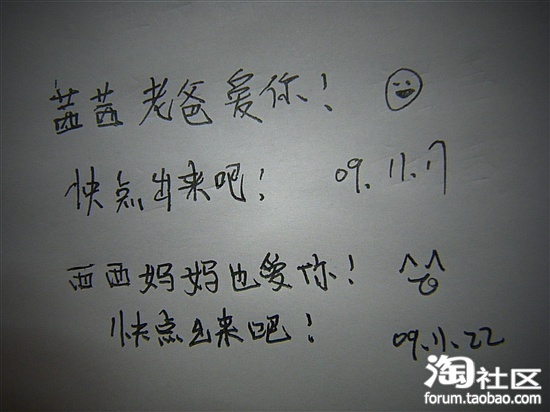 茜茜老爸爱你！
快点出来吧！ 09.11.17
西西妈妈也爱你！
快点出来吧！ 09.11.22
淘社区
forum.taobao.com